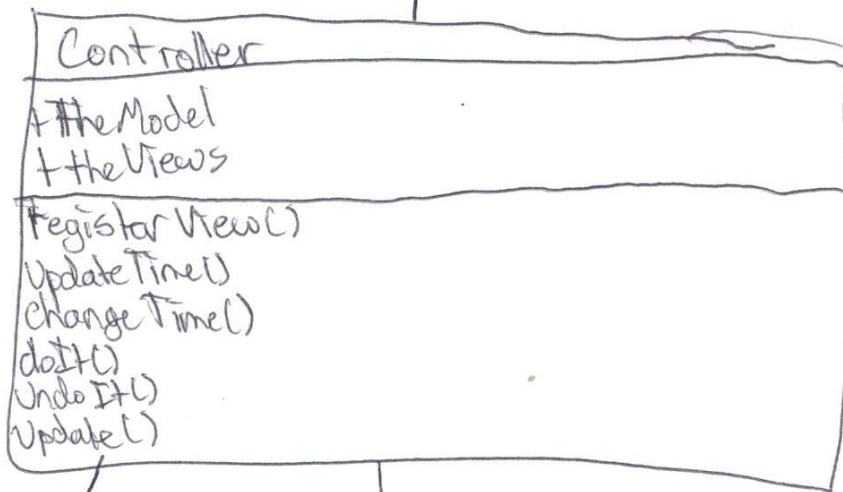 Controller
+ theModel
+ theViews
registarView()
UpdateTime()
changeTime()
doIt()
UndoIt()
Update()